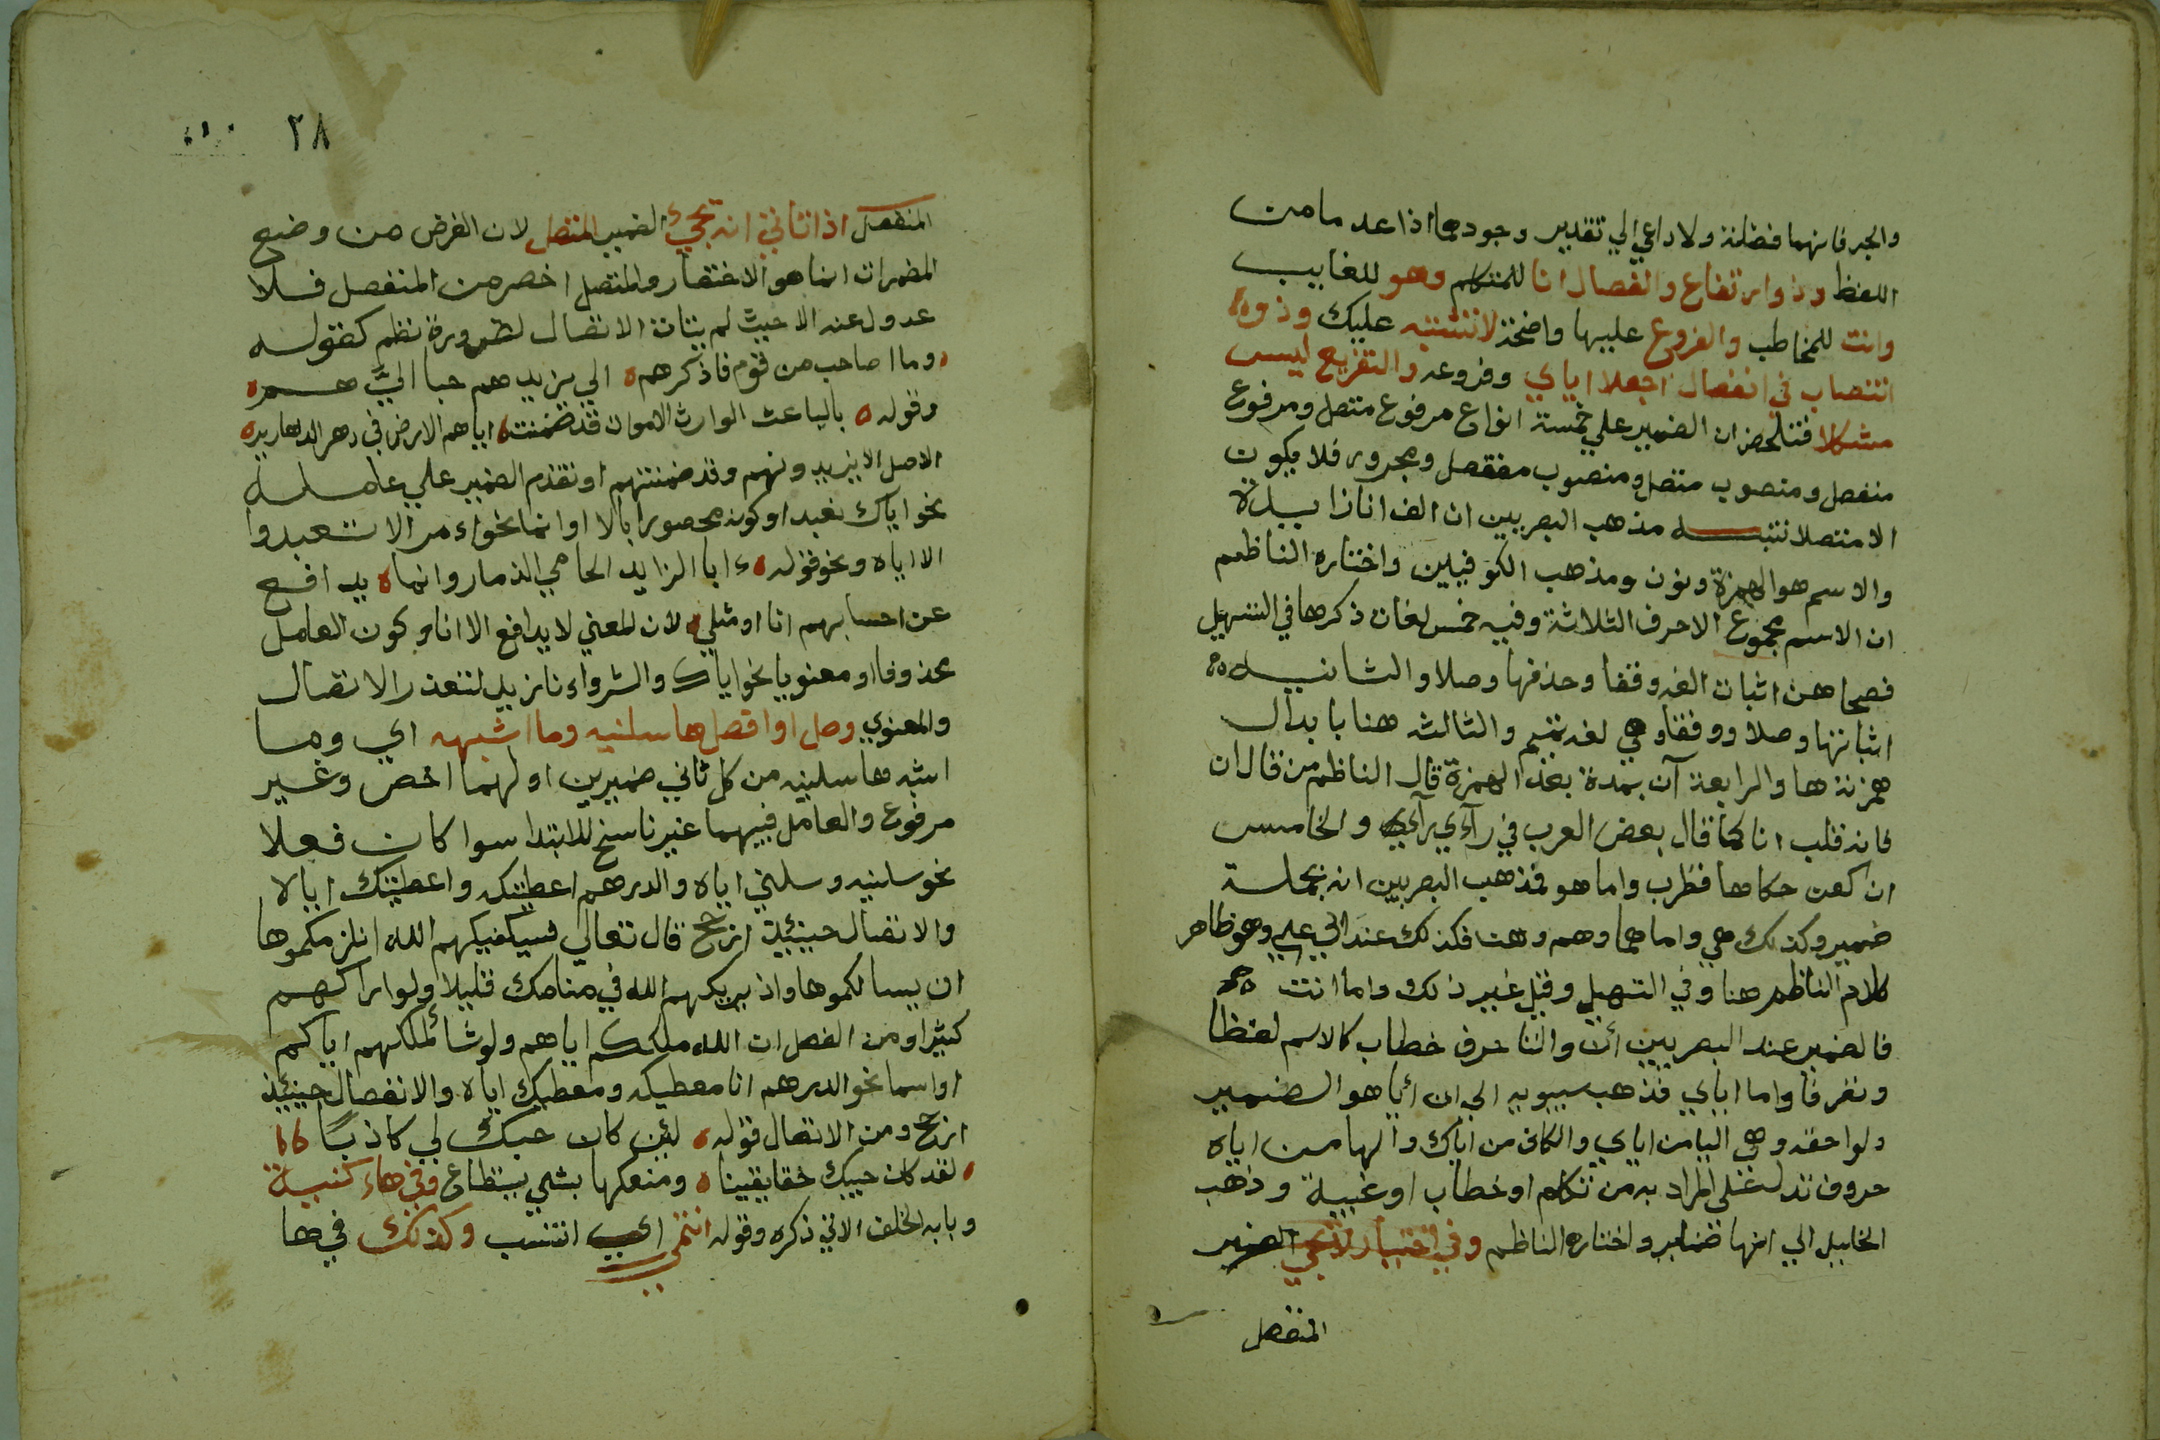 والجر فانهما فضلة ولا داعي الي تقدير وجودهما اذا عدما من
اللفظ وذو ارتفاع وانفصال انا للمتكلم وهو للغايب
وانت للمخاطب والفروع عليها واضحة لا تشتبه عليك وذو
انتصاب في انفصال اجعلا اياي وفروعه والتفريع ليس
مشكلا فتلخص ان الضمير علي خمسة انواع مرفوع متصل ومرفوع
منفصل ومنصوب متصل ومنصوب منفصل ومجرور فلا يكون
الا متصلا تنبيه مذهب البصريين ان الف انا زايدة
والاسم هو الهمزة ونون ومذهب الكوفيين واختاره الناظم
ان الاسم مجموع الاحرف الثلاثة وفيه خمس لغات ذكرها في التسهيل
فصحاهن اثبات الفه وقفا وحذفها وصلا والثانيه
اثباتها وصلا ووقفا وهي لغه تميم والثالثه هنا بابدال
همزته ها والرابعة آن بمدة بعد الهمزة قال الناظم من قال ان
فانه قلب انا كما قال بعض العرب في رآءي رآي والخامس
ان كعن حكاها قطرب واما هو فمذهب البصريين انه بجملته
ضمير وكذلك هي واما هما وهم وهن فكذلك عند ابي علي وهو ظاهر
كلام الناظم هنا وفي التسهيل وقيل غير ذلك واما انت
فالضمير عند البصريين أن والتا حرف خطاب كالاسم لفظا
وتصرفا واما اياي فذهب سيبويه الي ان أيا هو الضمير
ولواحقه وهي اليا من اياي والكاف من اياك والها من اياه
حروف تدل علي المراد به من تكلم او خطاب او غيبة وذهب
الخليل الي انها ضماير واختاره الناظم وفي اختيار لا يجي الضمير
المنفصل
٢٨
المنفصل اذا تاتي ان يجيء الضمير المتصل لان الغرض من وضع
المضمرات انما هو الاختصار والمتصل اخصر من المنفصل فلا
عدول عنه الا حيث لم يتات الاتصال لضرورة نظم كقوله
وما اصاحب من قوم فاذكرهم الي يزيدهم حبا اليَّ هم
وقوله بالباعث الوارث الاموات قد ضمنت اياهم الارض في دهر الدهارير
الاصل الا يزيدونهم وقد ضمنتهم او تقدم الضمير علي عامله
نحو اياك نعبد او كونه محصورا بالا او انما نحو امر الا تعبدوا
الا اياه ونحو قوله انا الزايد الحامي الذمار وانما يدافع
عن احسابهم انا او مثلي لان المعني لا يدافع الا انا وكون العامل
محذوفا او معنويا نحو اياك والشر وانا زيد لتعذر الاتصال
والمعنوي وصل او افصل ها سلنيه وما اشبهه اي وما
اشبه ها سلنيه من كل ثاني ضميرين اولهما اخص وغير
مرفوع والعامل فيهما غير ناسخ للابتدا سوا كان فعلا
نحو سلنيه وسلني اياه والدرهم اعطيتكه واعطيتك اياه
والاتصال حينئذ ارجح قال تعالي فسيكفيكهم الله انلزمكموها
ان يسالكموها واذ يريكهم الله في منامك قليلا ولو اراكهم
كثيرا ومن الفصل ان الله ملككم اياهم ولو شا لملكهم اياكم
او اسما نحو الدرهم انا معطيكه ومعطيك اياه والانفصال حينئذ
ارجح ومن الاتصال قوله لين كان حبك لي كاذبًا
لقد كان حبيك حقا يقينا ومنعكها بشي يستطاع وفي هاء كنته
وبابه الخلف الاتي ذكره وقوله انتمي اي انتسب وكذلك في ها